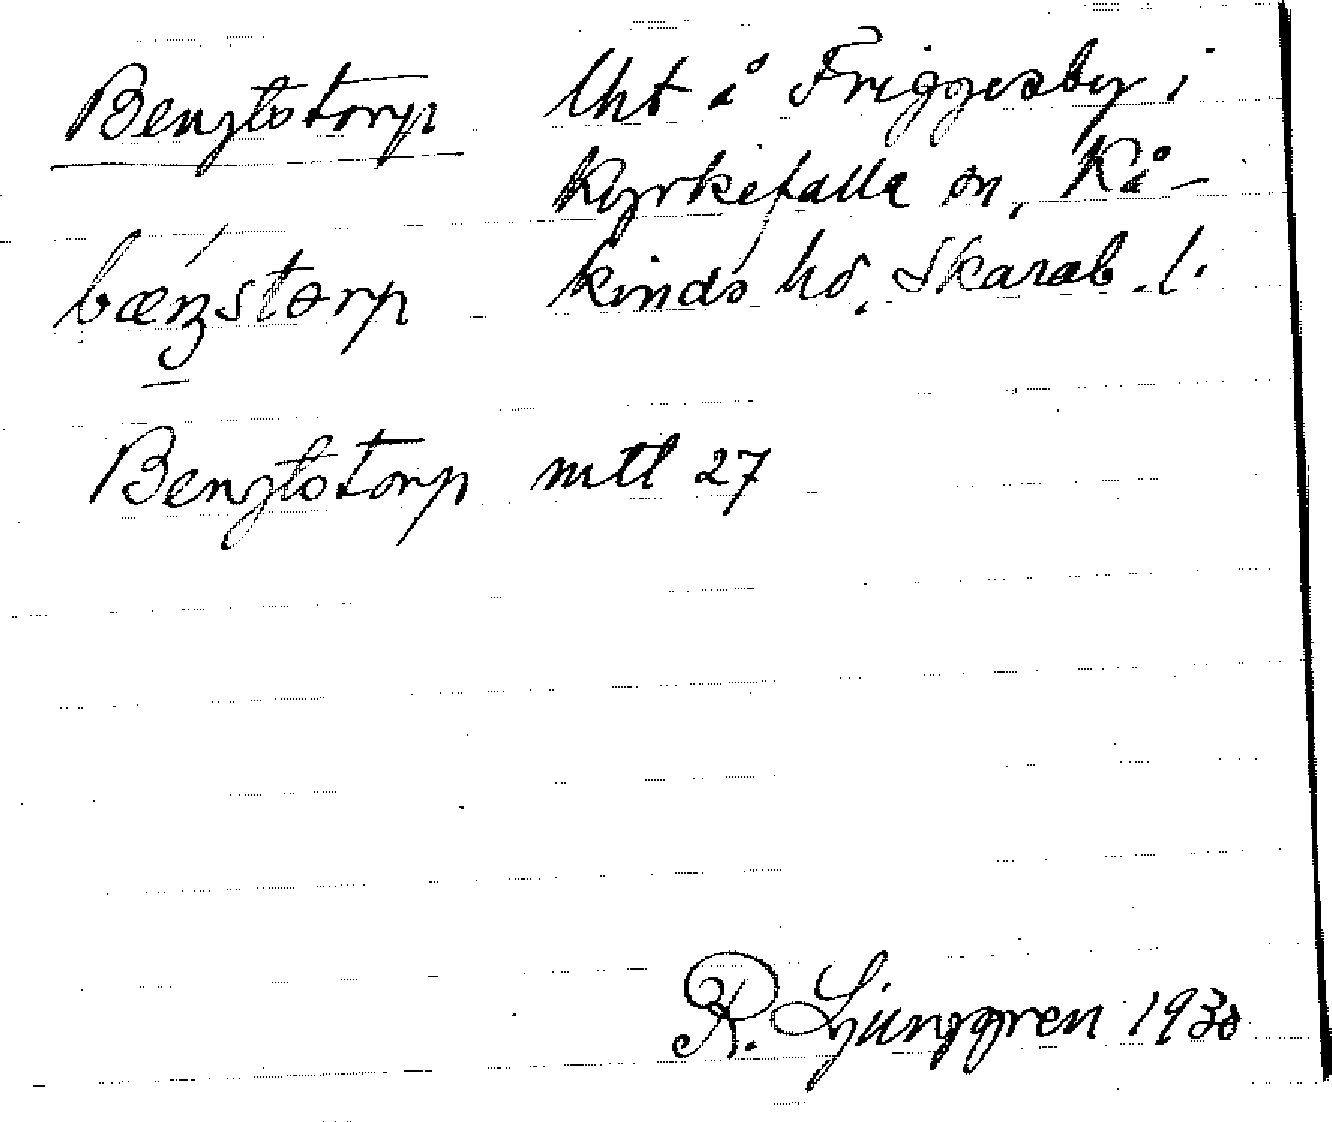 Bengtstorp lht å Friggesby i
Kyrkefalla sn, Kå-
kinds hd, Skarab. l.
bæŋstorp
Bengtstorp mtl 27
R. Ljunggren 1930